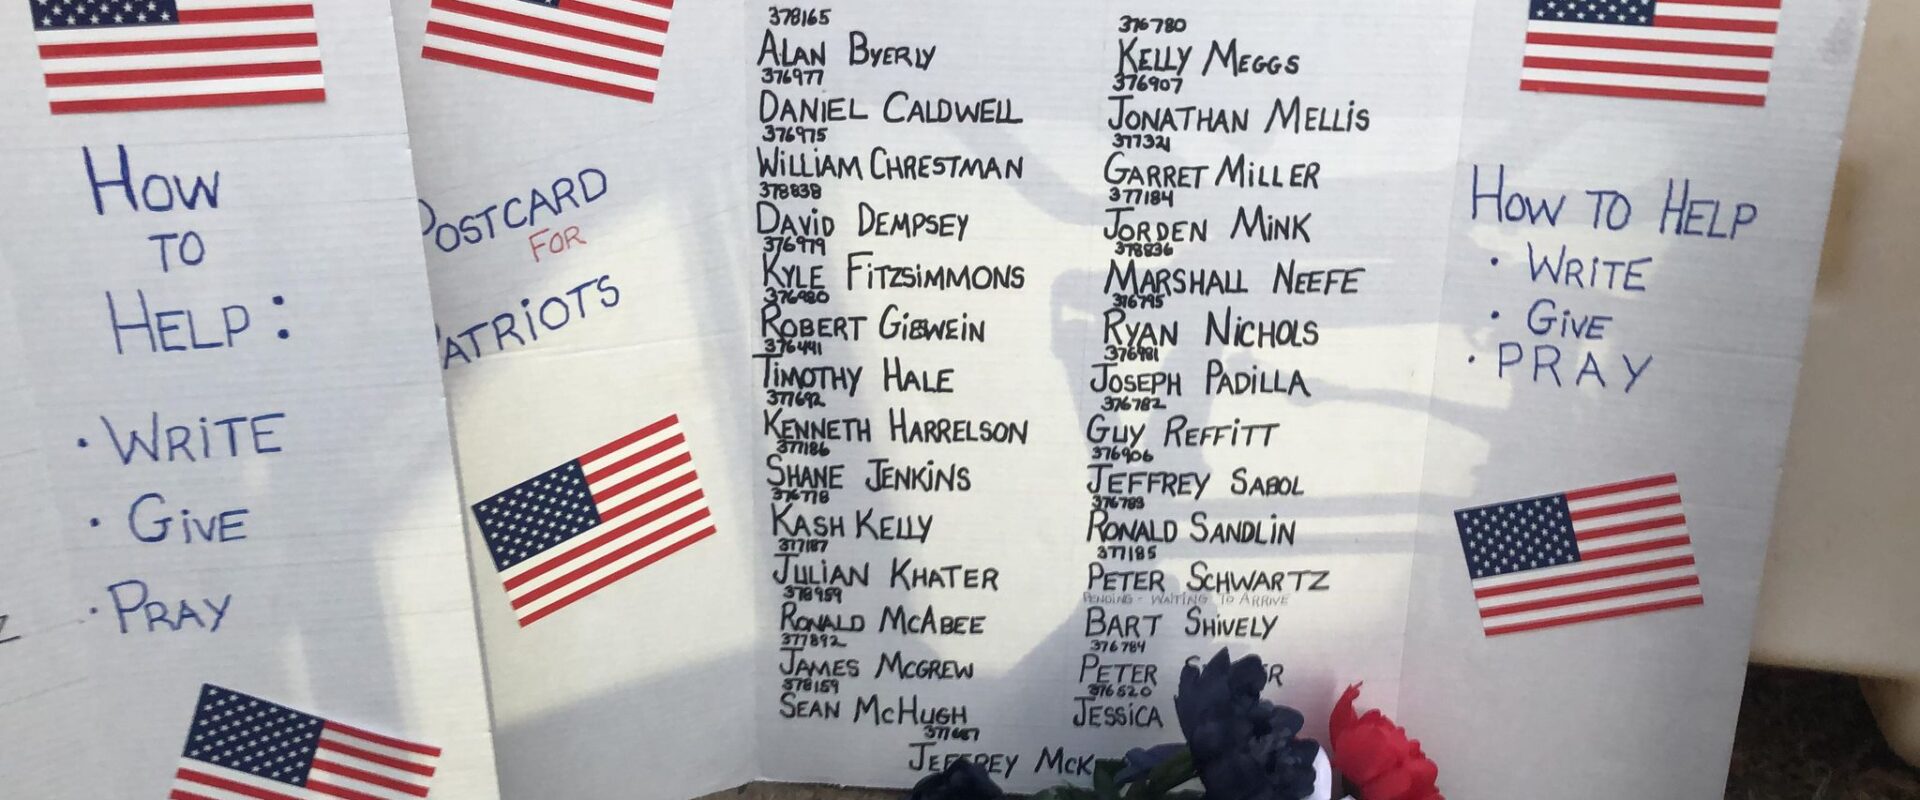 How
TO
HELP:
• WRiTE
• GiVE
• PRAY
POSTCARD
FOR
PATRiOTS
378165
ALAN BYERLY
376977
DANIEL CALDWELL
376975
WILLIAM CHRESTMAN
378838
DAViD DEMPSEY
376979
KYLE FiTZSiMMONS
376980
ROBERT GiESWEiN
376441
TiMOTHY HALE
377692
KENNETH HARRELSON
377186
SHANE JENKiNS
376778
KASH KELLY
377187
JULiAN KHATER
378959
RONALD MCABEE
377892
JAMES MCGREW
378159
SEAN MCHUGH
377657
JEFFREY MCK
376780
KELLY MEGGS
376907
JONATHAN MELLiS
377321
GARRET MiLLER
377184
JORDEN MiNK
378836
MARSHALL NEEFE
376795
RYAN NiCHOLS
376981
JOSEPH PADiLLA
376782
GUY REFFiTT
376906
JEFFREY SABOL
376783
RONALD SANDLiN
377185
PETER SCHWARTZ
PENDiNG - WAiTiNG TO ARRiVE
BART SHiVELY
376784
PETER
376520
JESSiCA
HOW TO HELP
• WRiTE
• GiVE
• PRAY